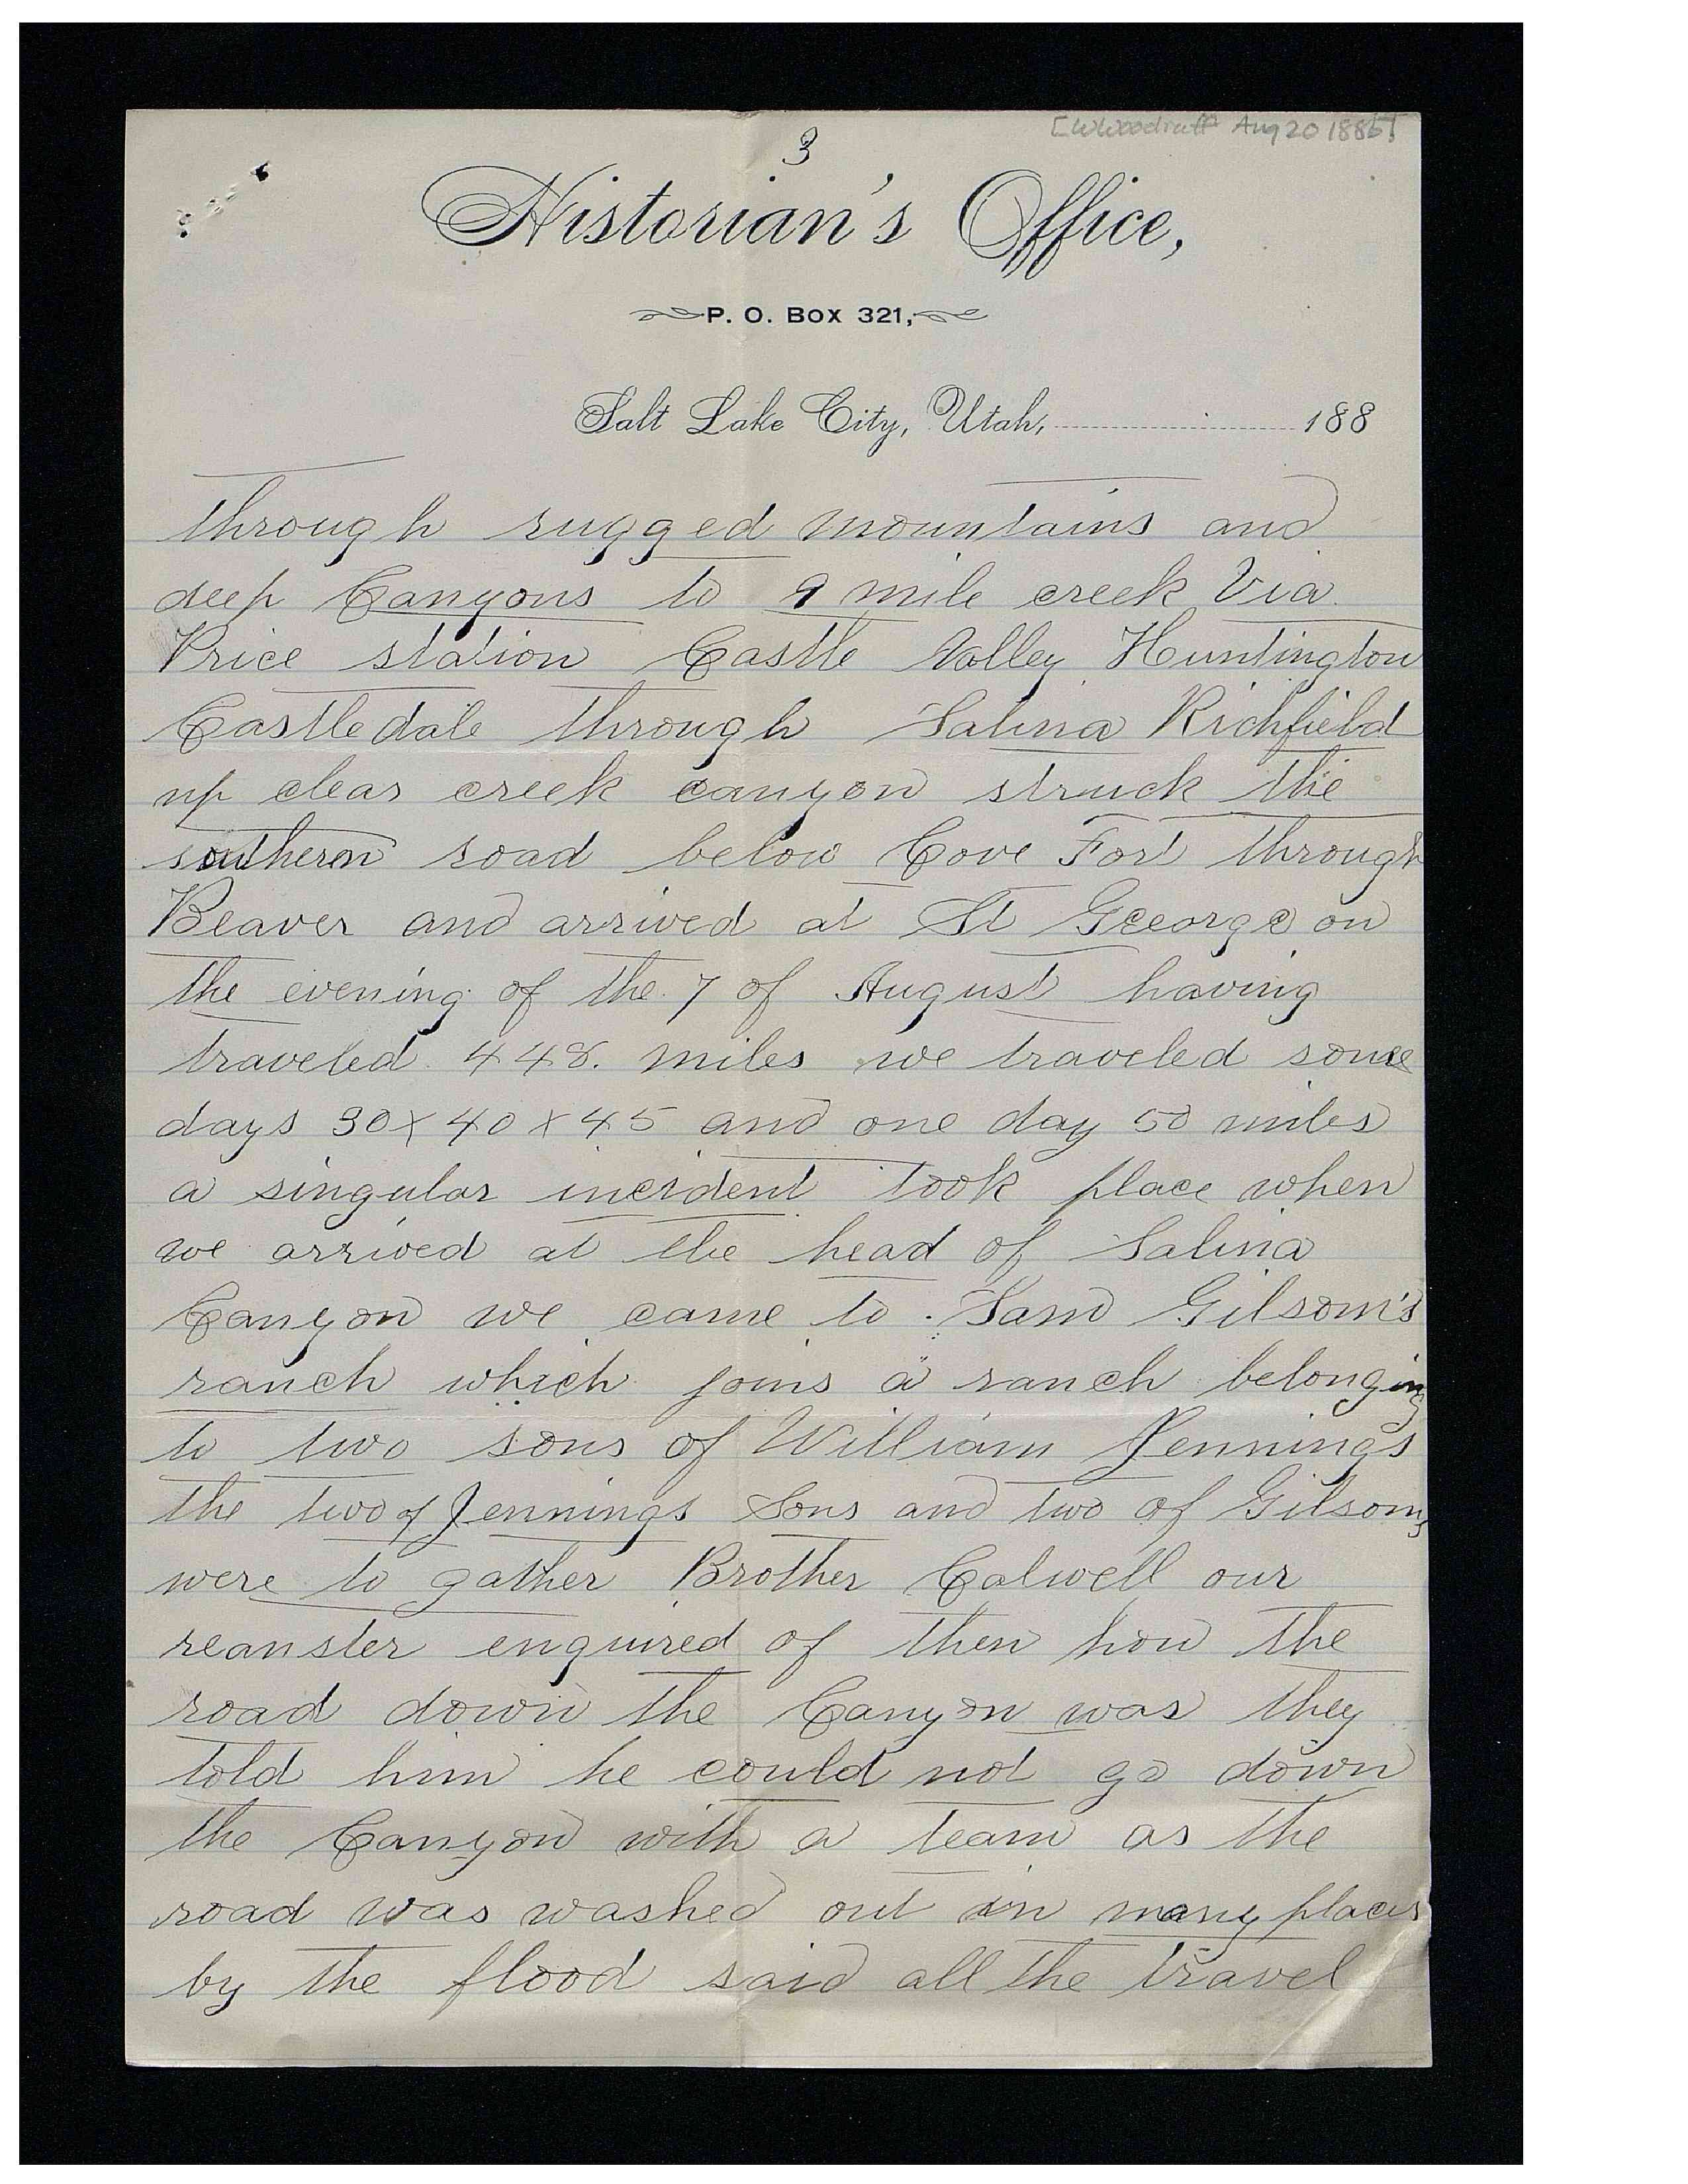 3
[WWoodruff Aug 20 1886]
Historian's Office,
P. O. Box 321,
Salt Lake City, Utah, 188
through rugged mountains and
deep Canyons to 9 mile creek Via
Price station Castle Valley Huntington
Castledale through Salina Richfield
up clear creek canyon struck the
southern road below Cove Fort through
Beaver and arrived at St Geeorge on
the evening of the 7 of August having
traveled 448. miles we traveled some
days 30 x 40 x 45 and one day 50 miles
a singular incident took place when
we arrived at the head of Salina
Canyon we came to Sam Gilsom's
ranch which joins a ranch belonging
to two sons of William Jennings
the two of Jennings Sons and two of Gilsoms
were to gather Brother Calwell our
reanster enquired of then how the
road down the Canyon was they
told him he could not go down
the Canyon with a team as the
road was washed out in many places
by the flood said all the travel